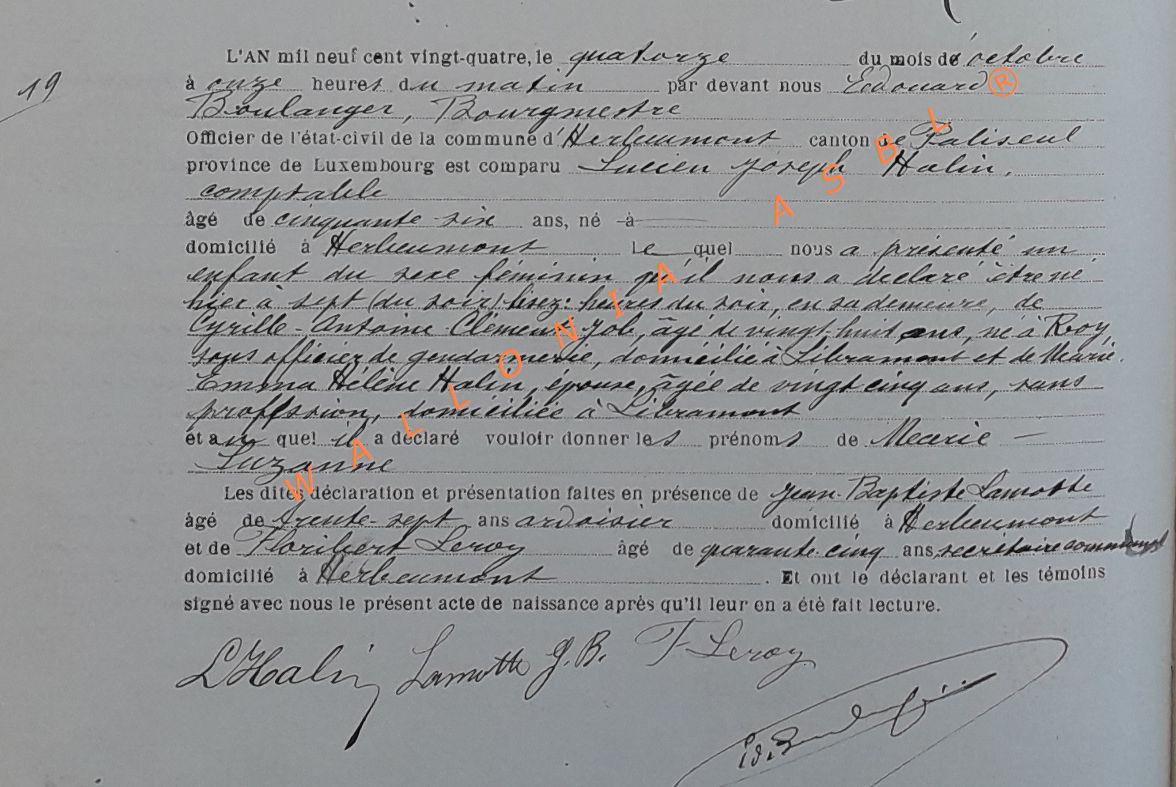 19
L'AN mil neuf cent vingt-quatre, le quatorze du mois de octobre
à onze heures du matin par devant nous Edouard ®
Boulanger, Bourgmestre
Officier de l'état-civil de la commune d'Herbeumont canton de Paliseul
province de Luxembourg est comparu Lucien Joseph Halin,
comptable
âgé de cinquante six ans, né à
domicilié à Herbeumont le quel nous a présenté un
enfant du sexe féminin qu'il nous a déclaré être né
hier à sept (du soir) lisez: heures du soir, en sa demeure, de
Cyrille-Antoine Clément Job, âgé de vingt-huit ans, né à Roy
sous officier de gendarmerie, domicilié à Libramont et de Marie
Emma Hélène Halin, épouse, âgée de vingt cinq ans, sans
proffssion, domiciliée à Libramont
et au quel il a déclaré vouloir donner les prénoms de Marie -
Suzanne
Les dites déclaration et présentation faites en présence de Jean-Baptiste Lamotte
âgé de trente-sept ans ardoisier domicilié à Herbeumont
et de Floribert Leroy âgé de quarante-cinq ans, secrétaire communal
domicilié à Herbeumont. Et ont le déclarant et les témoins
signé avec nous le présent acte de naissance après qu'il leur en a été fait lecture.
L Halin Lamotte J.B. F Leroy
Ed. Boulanger
WALLONIA ASBL